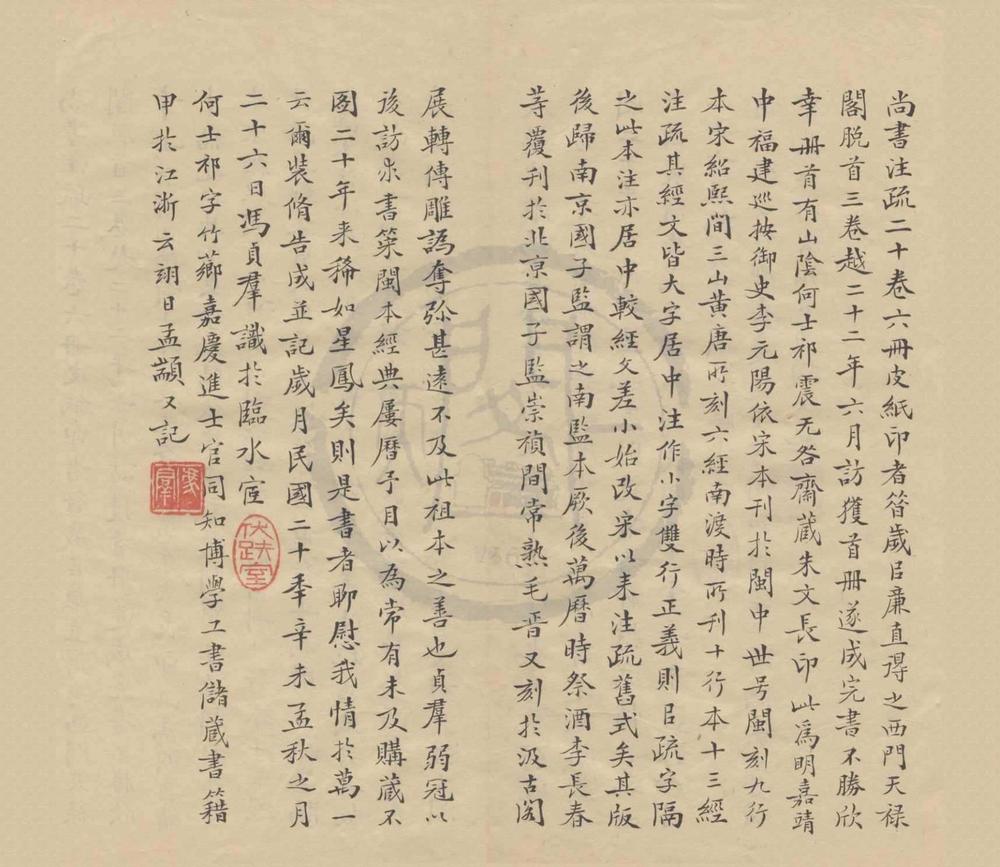 尚書注疏二十卷六冊皮紙印者曾歲㠯廉直得之西門天祿
閣脱首三卷越二十二年六月訪獲首冊遂成完書不勝欣
幸冊首有山陰何士祁震无咎齋藏朱文長印此爲明嘉靖
中福建巡按御史李元陽依宋本刊於閩中世号閩刻九行
本宋紹熙間三山黃唐所刻六經南渡時所刊十行本十三經
注疏其經文皆大字居中注作小字雙行正義則㠯疏字隔
之此本注亦居中較經文差小始改宋以来注疏舊式矣其版
後歸南京國子監謂之南監本厥後萬曆時祭酒李長春
等覆刊於北京國子監崇禎間常熟毛晋又刻於汲古閣
展轉傳雕譌奪弥甚遠不及此祖本之善也貞羣弱冠以
後訪求書築閩本經典屢曆予目以為常有未及購藏不
圖二十年来稀如星鳳矣則是書者聊慰我情於萬一
云爾裝脩告成並記歲月民國二十季辛未孟秋之月
二十六日馮貞羣識於臨水宧
伏跗室
何士祁字竹薌嘉慶進士官同知博學工書儲蔵書籍
甲於江浙云翊日孟顓又記
馮羣